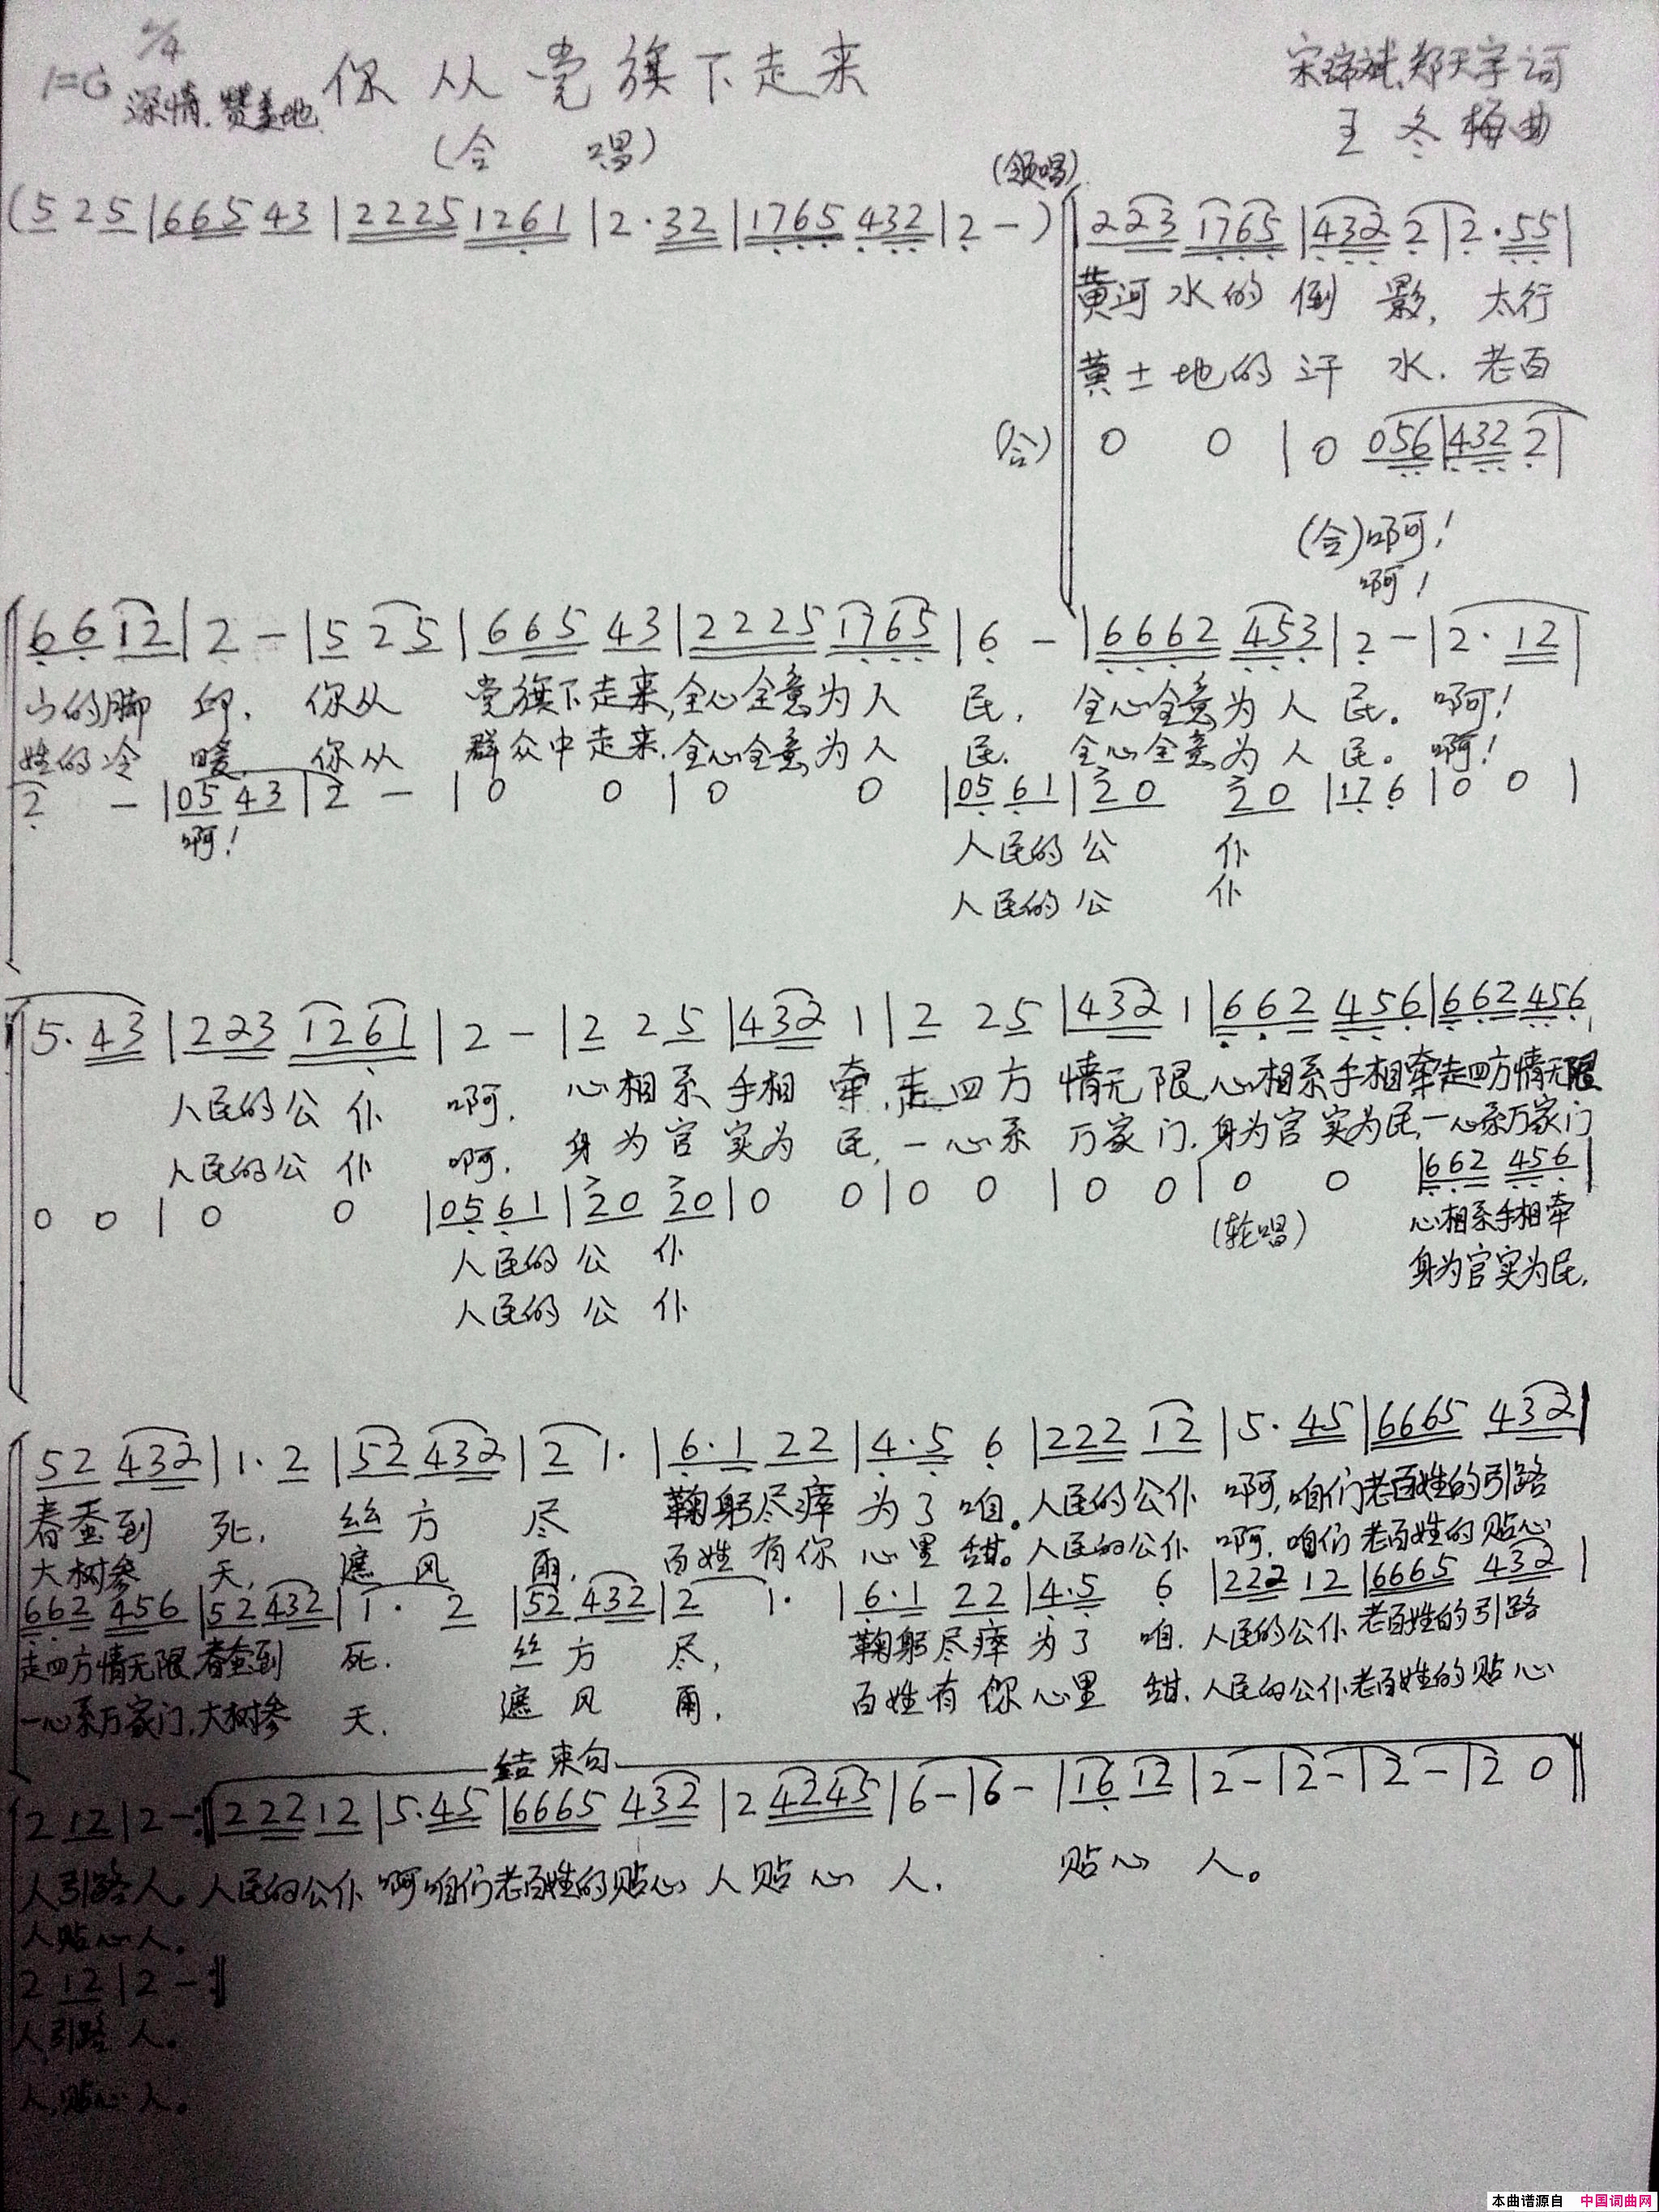 1=G 2/4 你从党旗下走来 宋 斌、郑天宇词
深情.赞美地 (合 唱) 王冬梅曲
(领唱)
(5 2 5|6 6 5 4 3|2 2 2 5 1 2 6 1|2·3 2|1 7 6 5 4 3 2|2 -)|2 2 3 1 7 6 5|4 3 2 2|2·5 5|
黄河水的倒影,太行
黄土地的汗水.老百
(合) 0 0|0 0 5 6|4 3 2 2|
(合)啊!
啊!
6 6 1 2|2 -|5 2 5|6 6 5 4 3|2 2 2 5 1 7 6 5|6 -|6 6 6 2 4 5 3|2 -|2·1 2|
山的脚印.你从党旗下走来,全心全意为人民.全心全意为人民。啊!
姓的冷暖.你从群众中走来.全心全意为人民.全心全意为人民。啊!
2 -|0 5 4 3|2 -|0 0|0 0|0 5 6 1|2 0 2 0|1 7 6|0 0|
啊! 人民的公仆
人民的公仆
5·4 3|2 2 3 1 2 6 1|2 -|2 2 5|4 3 2 1|2 2 5|4 3 2 1|6 6 2 4 5 6|6 6 2 4 5 6|
人民的公仆啊.心相系手相牵,走四方情无限,心相系手相牵走四方情无限
人民的公仆啊.身为官实为民,一心系万家门.身为官实为民,一心系万家门
0 0|0 0|0 5 6 1|2 0 2 0|0 0|0 0|0 0|0 0|6 6 2 4 5 6|
人民的公仆 (轮唱) 心相系手相牵
人民的公仆 身为官实为民,
5 2 4 3 2|1·2|5 2 4 3 2|2 1·|6·1 2 2|4·5 6|2 2 2 1 2|5·4 5|6 6 6 5 4 3 2|
春蚕到死,丝方尽 鞠躬尽瘁为了咱。人民的公仆啊,咱们老百姓的引路
大树参天,遮风雨.百姓有你心里甜。人民的公仆啊.咱们老百姓的贴心
6 6 2 4 5 6|5 2 4 3 2|1·2|5 2 4 3 2|2 1·|6·1 2 2|4·5 6|2 2 2 1 2|6 6 6 5 4 3 2|
走四方情无限,春蚕到死.丝方尽,鞠躬尽瘁为了咱.人民的公仆老百姓的引路
一心系万家门,大树参天.遮风雨,百姓有你心里甜.人民的公仆老百姓的贴心
结束句
2 1 2|2 -:‖2 2 2 1 2|5·4 5|6 6 6 5 4 3 2|2 4 2 4 5|6 -|6 -|1 6 1 2|2 -|2 -|2 -|2 0‖
人引路人。人民的公仆啊咱们老百姓的贴心人贴心人.贴心人。
人贴心人。
2 1 2|2 -:‖
人引路人。
人,贴心人。
本曲谱源自 中国词曲网